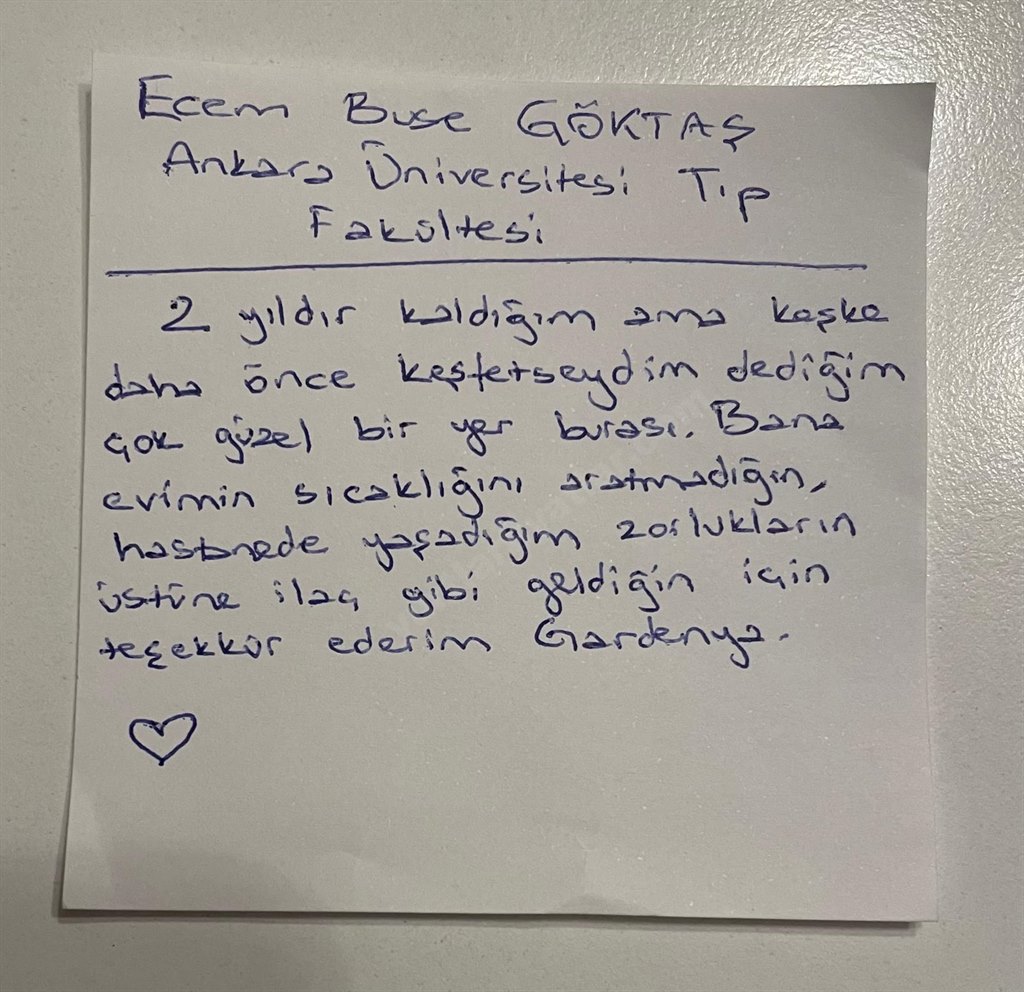 Ecem Buse GÖKTAŞ
Ankara Üniversitesi Tıp
Fakültesi
2 yıldır kaldığım ama keşke
daha önce keşfetseydim dediğim
çok güzel bir yer burası. Bana
evimin sıcaklığını aratmadığın,
hastanede yaşadığım zorlukların
üstüne ilaç gibi geldiğin için
teşekkür ederim Gardenya.